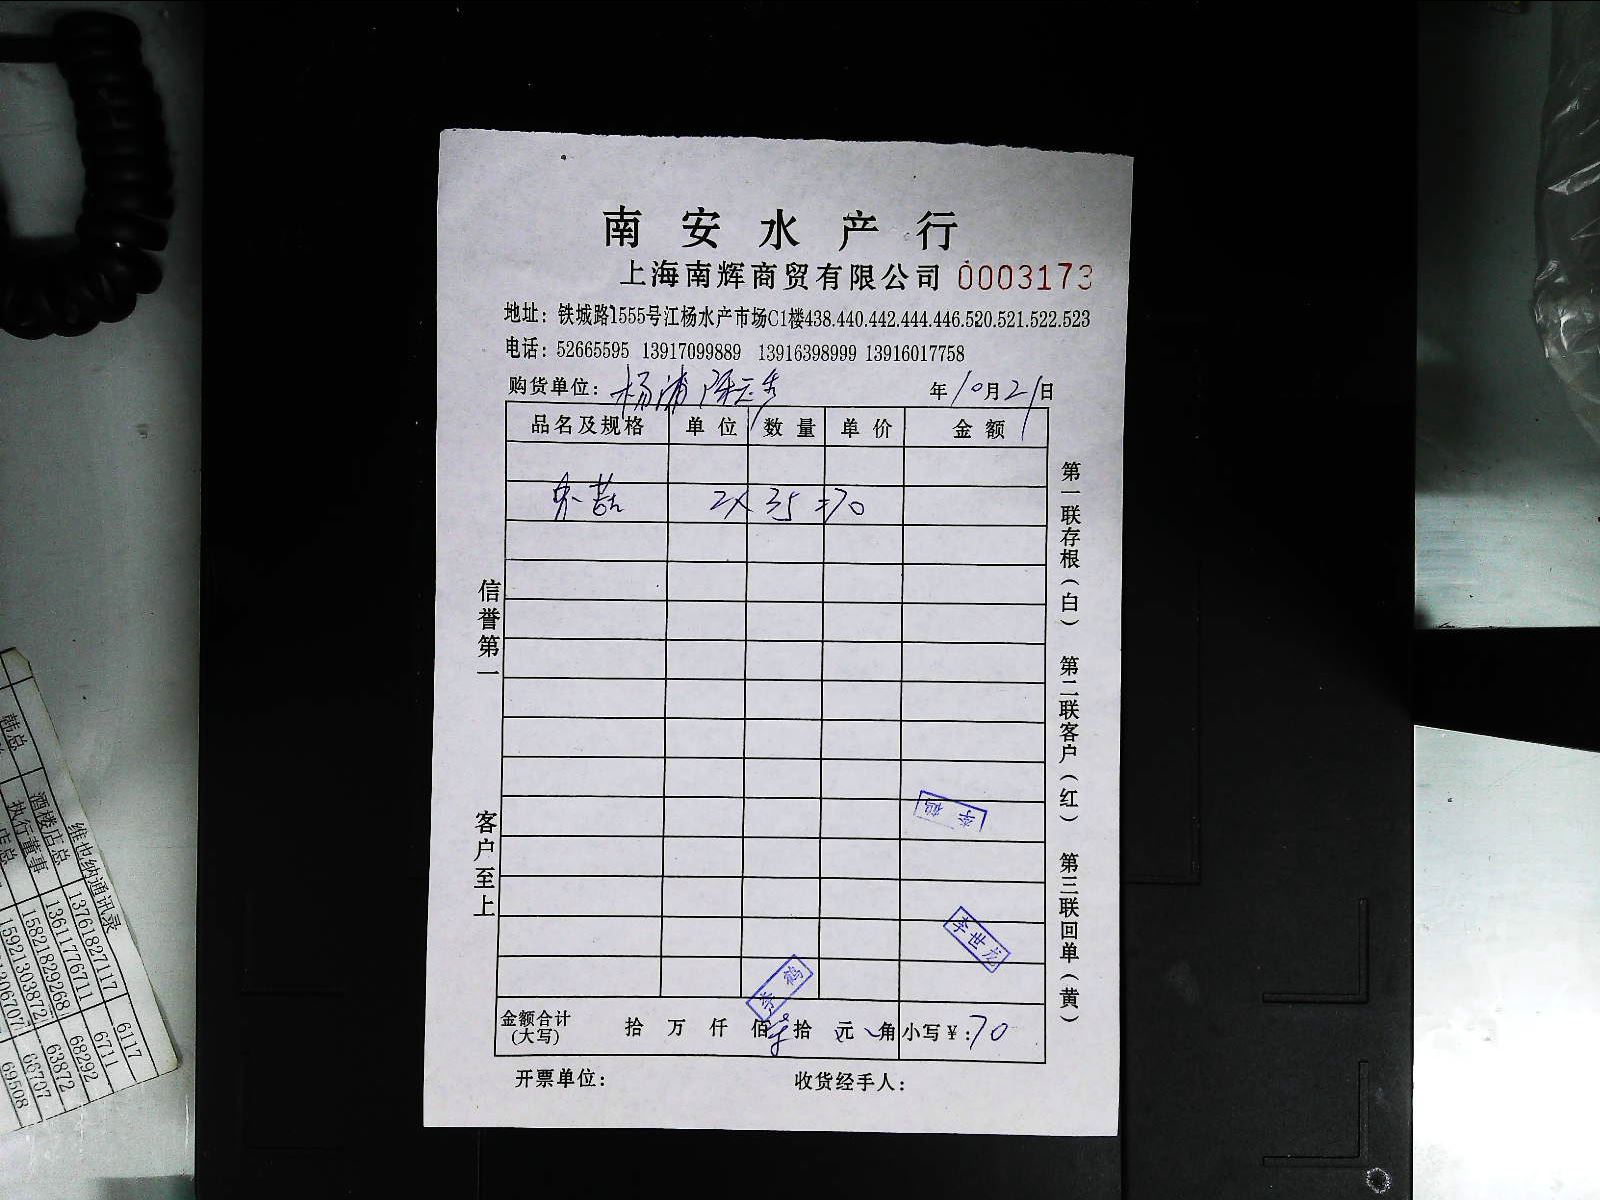 南安水产行
上海南辉商贸有限公司 0003173
地址：铁城路1555号江杨水产市场C1楼438.440.442.444.446.520.521.522.523
电话：52665595 13917099889 13916398999 13916017758
购货单位：杨浦 年10月21日
品名及规格 单位 数量 单价 金额
2×35=70
金额合计(大写) 拾万仟佰柒拾元角 小写￥：70
开票单位： 收货经手人：
信誉第一 客户至上
第一联存根（白） 第二联客户（红） 第三联回单（黄）
李鹤
李世龙
李鹤
维也纳通讯录
酒楼店总 13761827117 6117
执行董事 13611776711 6711
15821829268 68292
15921303872 63872
66707
69508
韩总